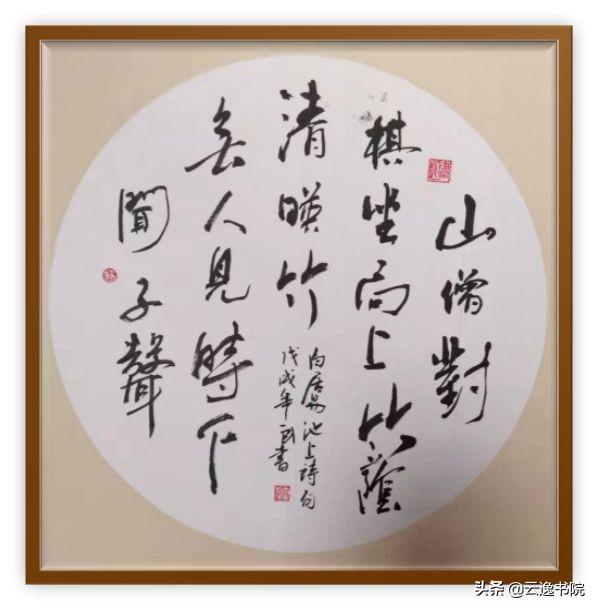 山僧對
棋坐局上竹蔭
清暎竹
無人見時下
聞子聲
白居易池上詩句
戊戌年書
头条 @云逸书院